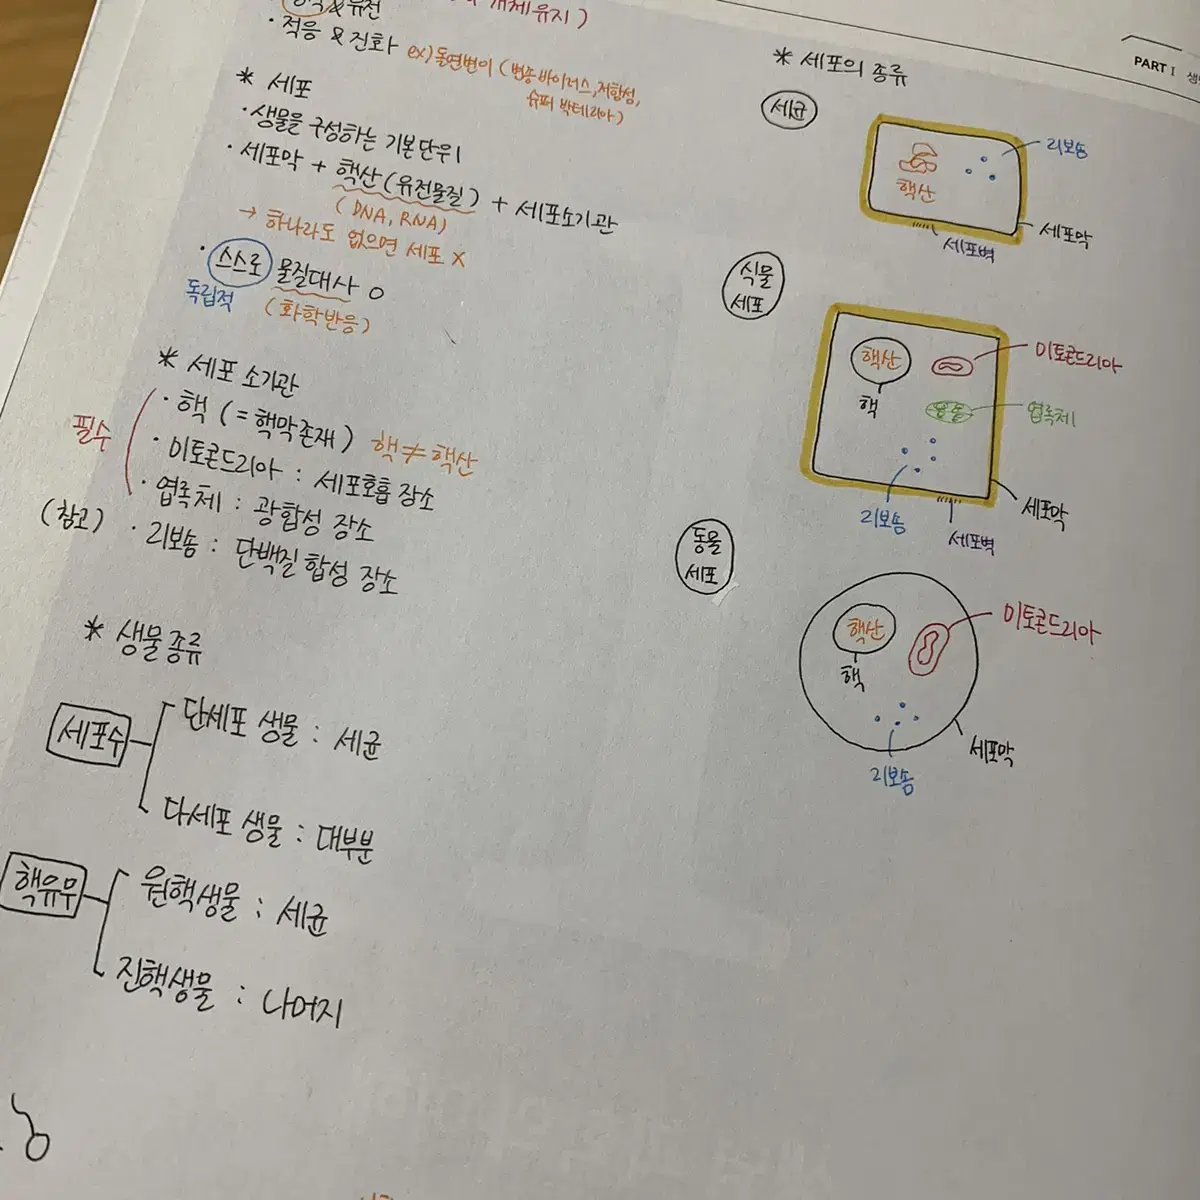 &유전
개체유지)
· 적응 & 진화 ex) 돌연변이 (변종 바이러스, 저항성,
슈퍼 박테리아)
* 세포
· 생물을 구성하는 기본단위
· 세포막 + 핵산(유전물질) + 세포소기관
(DNA, RNA)
→ 하나라도 없으면 세포 X
· 스스로 물질대사 O
독립적 (화학반응)
* 세포 소기관
필수
· 핵 (= 핵막존재) 핵≠핵산
· 미토콘드리아 : 세포호흡 장소
· 엽록체 : 광합성 장소
(참고) · 리보솜 : 단백질 합성 장소
* 생물종류
세포수
단세포 생물 : 세균
다세포 생물 : 대부분
핵유무
원핵생물 : 세균
진핵생물 : 나머지
PART I
* 세포의 종류
세균
리보솜
핵산
세포막
세포벽
식물
세포
핵산
핵
미토콘드리아
엽록체
리보솜
세포막
세포벽
동물
세포
핵산
핵
미토콘드리아
세포막
리보솜